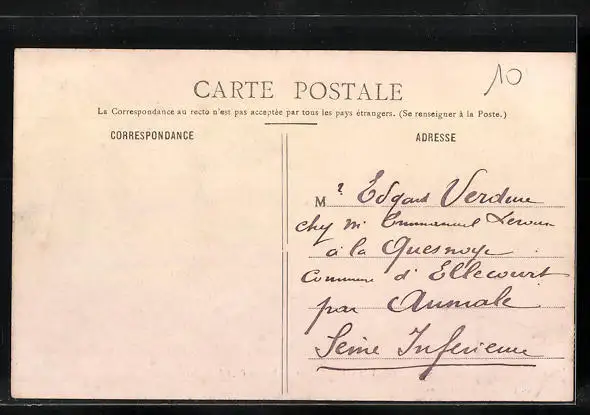 10
CARTE POSTALE
La Correspondance au recto n'est pas acceptée par tous les pays étrangers. (Se renseigner à la Poste.)
CORRESPONDANCE
ADRESSE
M r Edgard Verdure
chez Mr Emmanuel Leroux
à la Quesnoye
Commune d'Ellecourt
par Aumale
Seine Inferieure